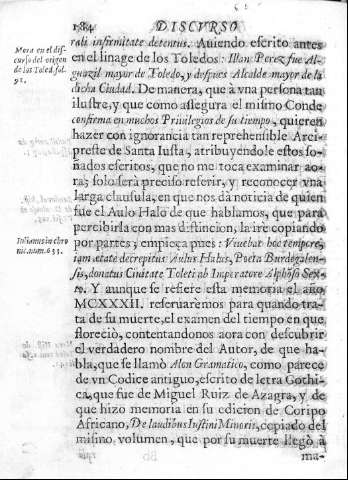 184 DISCVRSO
rali infirmitate detentus. Auiendo escrito antes
en el linage de los Toledos: Illan Perez fue Al-
guazil mayor de Toledo, y despues Alcalde mayor de la
dicha Ciudad. De manera, que à vna persona tan
ilustre, y que como assegura el mismo Conde
confirma en muchos Priuilegios de su tiempo, quieren
hazer con ignorancia tan reprehensible Arci-
preste de Santa Iusta, atribuyendole estos so-
ñados escritos, que no me toca examinar ao-
ra; solo serà preciso referir, y reconocer vna
larga clausula, en que nos dà noticia de quien
fue el Aulo Halo de que hablamos, que para
percibirla con mas distincion, la irè copiando
por partes; empieça pues: Viuebat hoc tempore,
iam ætate decrepitus Aulus Halus, Poeta Burdegalen-
sis, donatus Ciuitate Toleti ab Imperatore Alphõso Sex-
to. Y aunque se refiere esta memoria el año
MCXXXII. reseruaremos para quando tra-
ta de su muerte, el examen del tiempo en que
floreciò, contentandonos aora con descubrir
el verdadero nombre del Autor, de que ha-
bla, que se llamò Alon Gramatico, como parece
de vn Codice antiguo, escrito de letra Gothi-
ca, que fue de Miguel Ruiz de Azagra, y de
que hizo memoria en su edicion de Coripo
Africano, De laudibus Iustini Minoris, copiado del
mismo volumen, que por su muerte llegò à
ma-
Mora en el dis-
curso del origen
de los Toled. fol.
92.
Iulianus in chro
nic. num. 633.